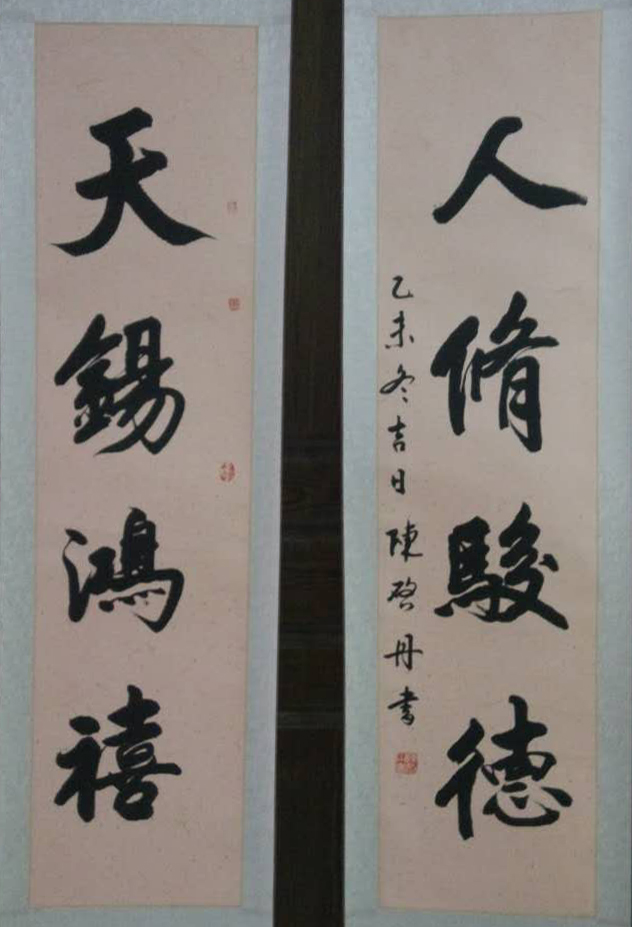 人脩駿德
乙未冬吉日 陳啓丹書
天錫鴻禧